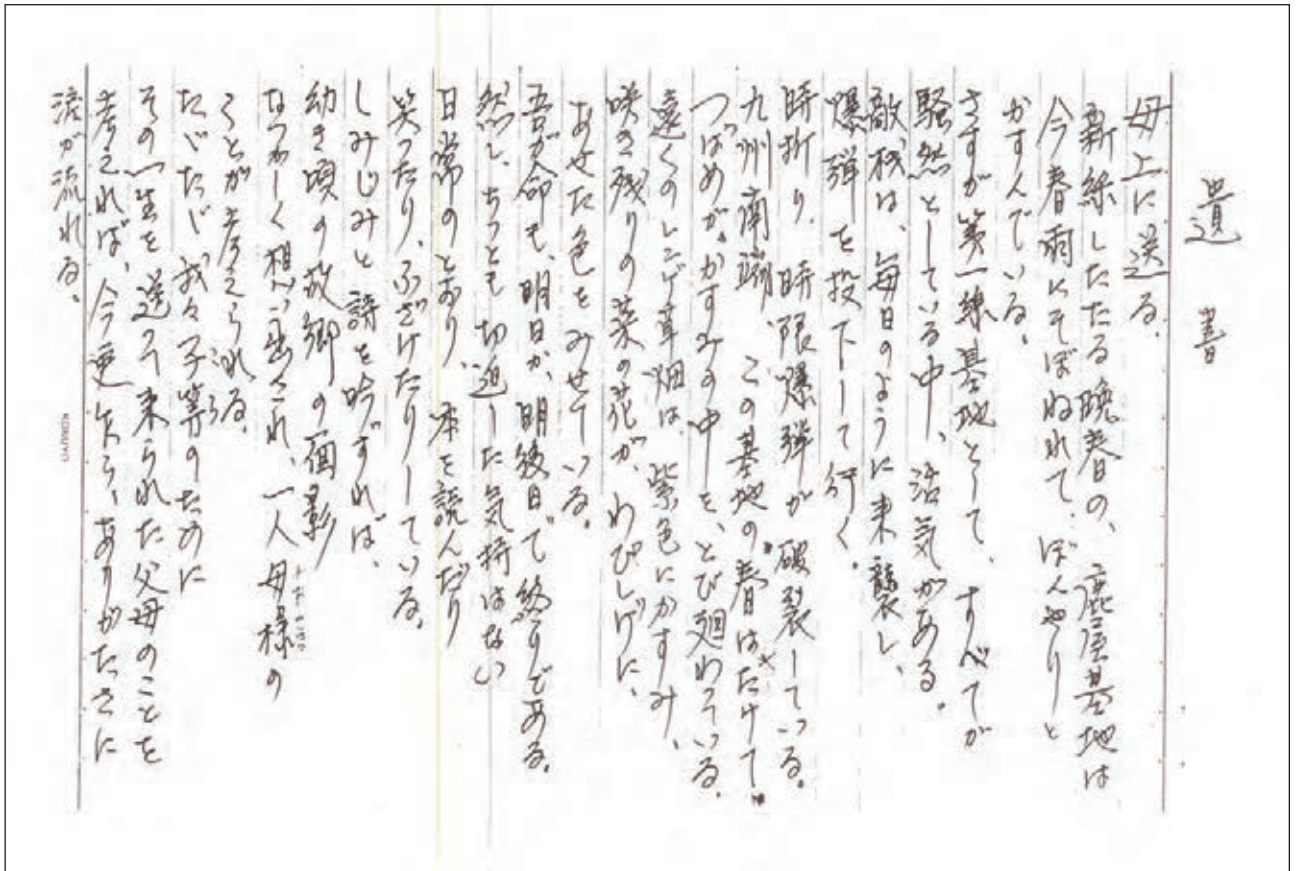 遺書
母上に送る。
新緑したたる晩春の、鹿屋基地は
今春雨にそぼぬれて、ぼんやりと
かすんでいる。
さすが第一線基地として、すべてが
騒然としている中、活気がある。
敵機は、毎日のように来襲し、
爆弾を投下して行く。
時折り、時限爆弾が破裂している。
九州南端、この基地の春はたけて、
つばめが、かすみの中を、とび廻わっている。
遠くのレンゲ草畑は、紫色にかすみ、
咲き残りの菜の花が、わびしげに、
あせた色をみせている。
吾が命も、明日か、明後日で終りである。
然し、ちっとも切迫した気持はない
日常のとおり、本を読んだり
笑ったり、ふざけたりしている。
しみじみと詩を吟ずれば、
幼き頃の故郷の面影
なつかしく想い出され、一人母様の
ことが考えられる。
たゞたゞ、我々子等のために
その一生を送って来られた父母のことを
考えれば、今更乍ら、ありがたさに
涙が流れる。
KOKUYO